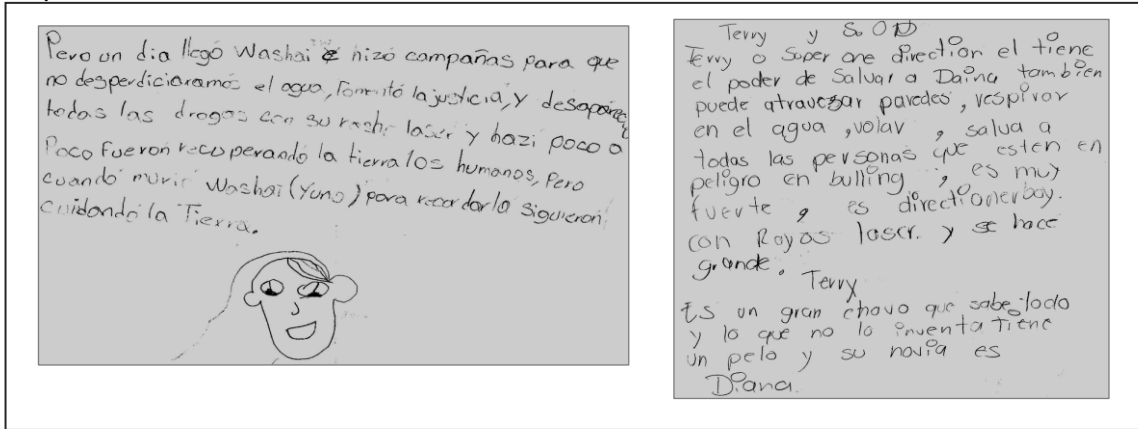 Pero un dia llegó Washai e hizo campañas para que
no desperdiciaramos el agua, fomentó la justicia, y desaparecí
todas las drogas con su laser y hazi poco a
Poco fueron recuperando la tierra los humanos, Pero
cuando murió Washai (Yuno) para recordarlo siguieron
cuidando la Tierra.
Terry y S. OD
Terry o Super one direction el tiene
el poder de Salvar a Daina tambien
puede atravezar paredes, respirar
en el agua, volar, salva a
todas las personas que esten en
peligro en bulling, es muy
fuerte, es directionerboy.
con Rayos laser. y se hace
grande.
Terry
Es un gran chavo que sabe todo
y lo que no lo inventa Tiene
un pelo y su novia es
Diana.